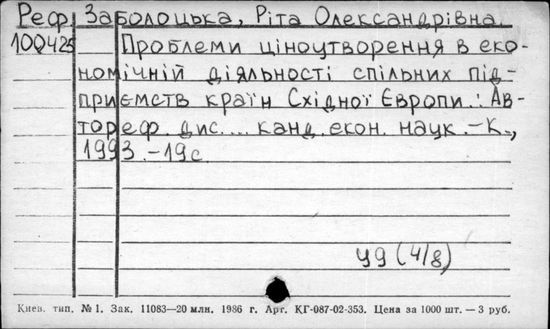 Реф Заболоцька, Ріта Олександрівна.
100425 Проблеми ціноутворення в еко-
номічній діяльності спільних під-
приємств країн Східної Європи.: Ав-
тореф. дис.... канд. екон. наук.-К.,
1993.-19с.
У9(4/8)
Киев. тип. №1. Зак. 11083—20 млн. 1986 г. Арт. КГ-087-02-353. Цена за 1000 шт. — 3 руб.